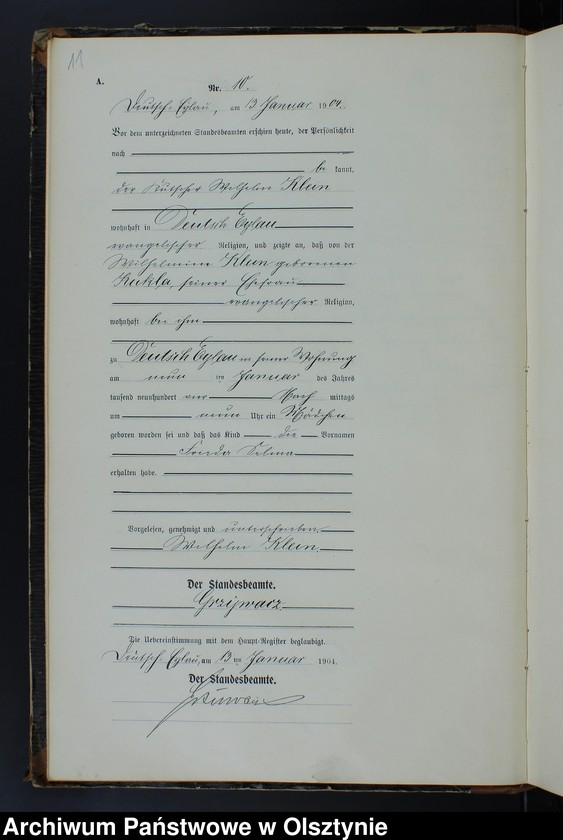 11
A.
Nr. 10.
Deutsch-Eylau, am 13 Januar 1904.
Vor dem unterzeichneten Standesbeamten erschien heute, der Persönlichkeit
nach
be kannt,
der Kutscher Wilhelm Klein
wohnhaft in Deutsch Eylau
evangelischer Religion, und zeigte an, daß von der
Wilhelmine Klein geborenen
Kukla, seiner Ehefrau
evangelischer Religion,
wohnhaft bei ihm
zu Deutsch Eylau in seiner Wohnung
am neun ten Januar des Jahres
tausend neunhundert vier Nach mittags
um neun Uhr ein Mädchen
geboren worden sei und daß das Kind die Vornamen
Frieda Selma
erhalten habe.
Vorgelesen, genehmigt und unterschrieben.
Wilhelm Klein.
Der Standesbeamte.
Grzywacz
Die Uebereinstimmung mit dem Haupt-Register beglaubigt.
Deutsch-Eylau, am 13 ten Januar 1904.
Der Standesbeamte.
Archiwum Państwowe w Olsztynie